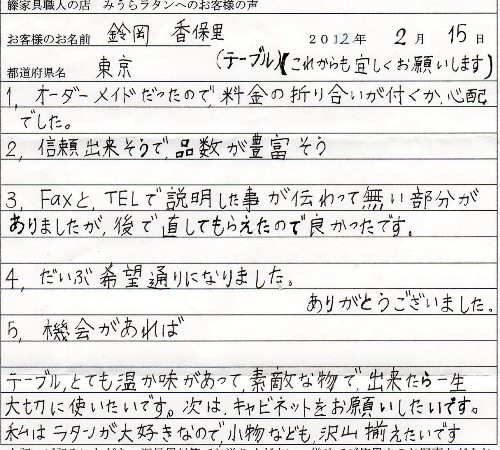 籐家具職人の店 みうらラタンへのお客様の声
お客様のお名前 鈴岡 香保里 2012年 2月 15日
都道府県名 東京 (テーブル)(これからも宜しくお願いします)
1, オーダーメイドだったので、料金の折り合いが付くか、心配
でした。
2, 信頼出来そうで、品数が豊富そう
3, Faxと、TELで説明した事が伝わって無い部分が
ありましたが、後で直してもらえたので良かったです。
4, だいぶ希望通りになりました。
ありがとうございました。
5, 機会があれば
テーブル、とても温か味があって、素敵な物で、出来たら一生
大切に使いたいです。次は、キャビネットをお願いしたいです。
私はラタンが大好きなので、小物なども、沢山揃えたいです